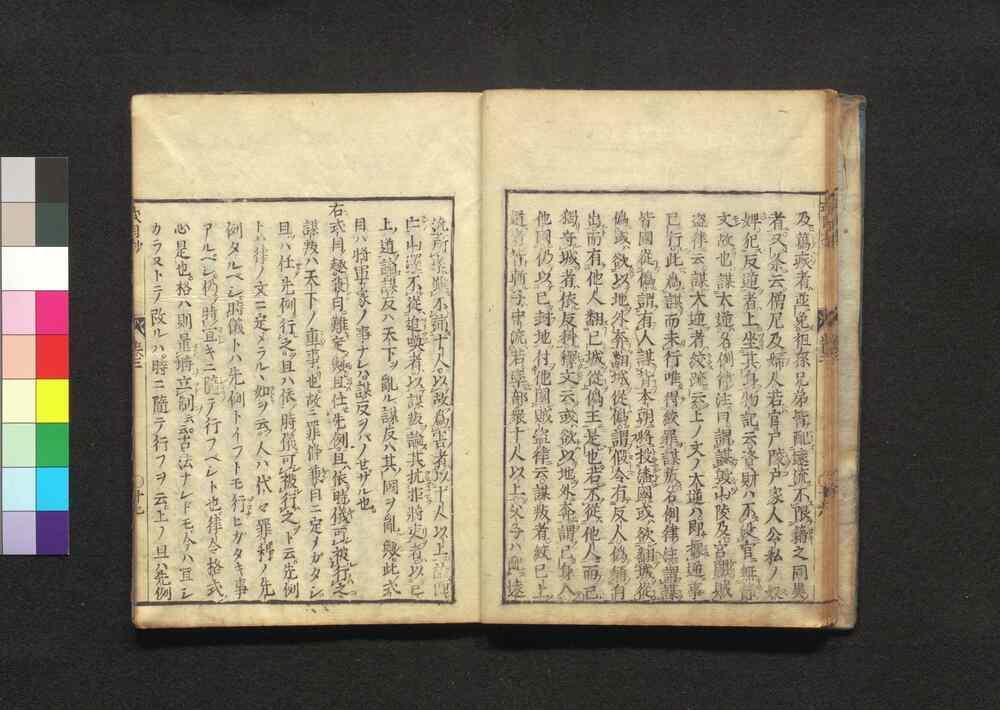 及篤疾者並免祖孫兄弟皆配遠流不限籍之同異
者又条云僧尼及婦人若官戸陵戸家人公私ノ奴
婢犯反逆者上坐其身物記云資財ハ不没官
文故也謀大逆名例律注曰謂謀毀山陵及宮闕賊
盗律云謀大逆者絞疏云上ノ文ノ大逆ハ即
已行此為謀而未行唯得絞罪謀叛名例律注謂謀
皆國從偽謂有人謀背本朝将投蕃國或欲翻城從
偽或欲以地外奔翻城從偽謂假令有反人偽
出而有他人翻已城從偽王是也若不從他人而已
獨守城者依反科釋文云或欲以地外奔謂已身入
他國仍以已封地付他國賊盗律云謀叛者絞已上
道者皆斬子中流若率部衆十人以上父子ハ配遠
流所率雖不満十人以故為害者以十人以上論即
亡山澤不從追喚者以謀叛論其抗拒将吏者以已
上道論謀反ハ天下ヲ亂ル謀反ハ其國ヲ亂此式
目ハ将軍家ノ事ナレハ謀反ヲハノセザル也
右式目趣兼日難定歟且任先例且依時儀可被行之
謀叛ハ天下ノ重事也故ニ罪條兼日ニ定メガタシ
且ハ仕先例行之且ハ依時儀可被行之ト云先例
トハ律ノ文ニ定メラル如ヲ云人ハ代々罪科ノ先
例タルベシ時儀トハ先例トイフトモ行ヒガタキ事
アルベシ仍時宜キニ隨テ行フベシト也律令格式
心是也格ハ則量時立制云古法ナレドモ今ハ宜シ
カラストテ改ルハ時ニ隨テ行フヲ云上ノ且ハ先例